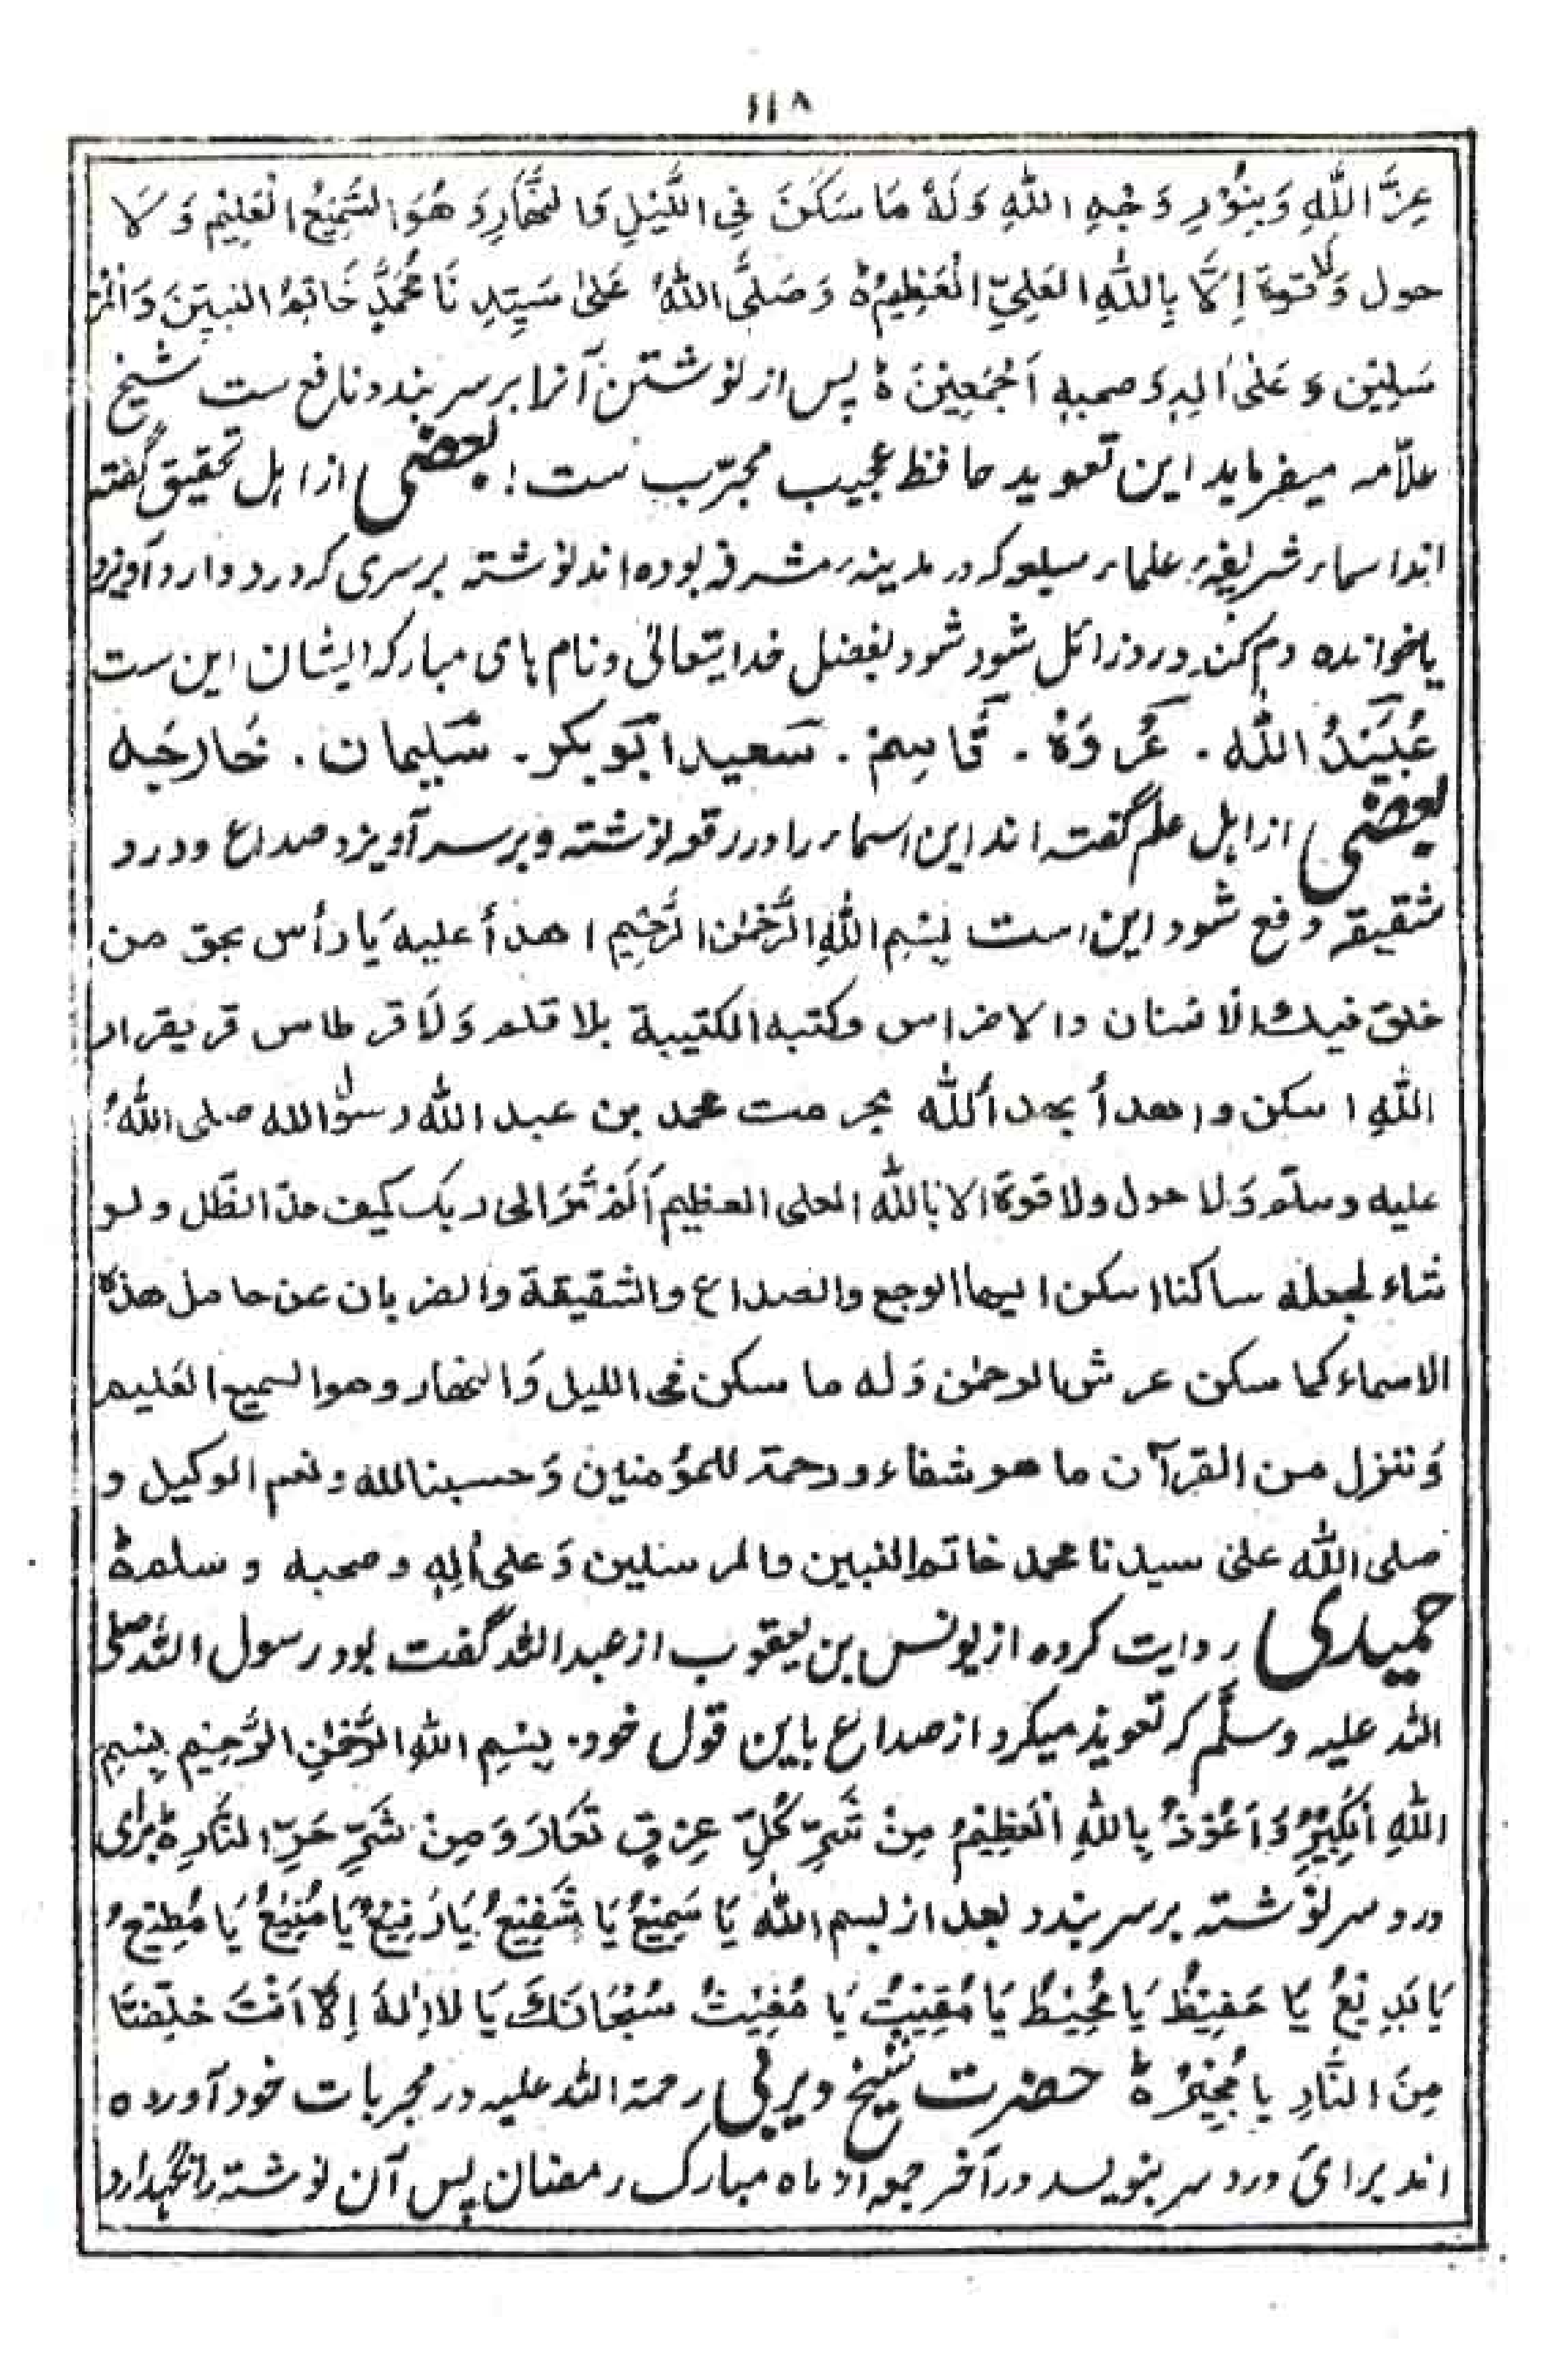 ۱۱۸
عِزَّ اللّٰهِ وَبِنُوْرِ وَجْهِ اللّٰهِ وَلَهٗ مَا سَكَنَ فِي اللَّيْلِ وَالنَّهَارِ وَهُوَ السَّمِيْعُ الْعَلِيْمِ وَ لَا
حول وَلَا قوة اِلَّا بِاللّٰهِ العَلِيِّ الْعَظِيْمُ ۃ وَصَلَّى اللّٰهُ عَلىٰ سَيِّدِ نَا مُحَمَّدٍ خَاتِمُ النبيّنَ وَالْمُرْ
سَلِيْن وَ عَلىٰ اٰلِهٖ وَصحبهٖ اَجْمَعِيْنَ ۃ پس از نوشتن آنرا برسر بندد نافع ست شیخ
علاّمہ میفرماید این تعوید حافظ عجیب مجرّب ست! بعضی از اہل تحقیق گفتہ
اند اسماء شریفہء علماء سیعہ کہ در مدینہء مشرفہ بودہ اند نوشتہ برسری کہ درد دارد آویزد
یاخواندہ دم کند درد زائل شود شود بفضل خدایتعالیٰ و نام ہای مبارکہ ایشان این ست
عُبَيْدُ اللّٰه ۔ عُروَةْ ۔ قَاسِمْ ۔ سَعيد اَبُوبكر ۔ سُليمان ۔ خَارجَه
بعضی از اہل علم گفتہ اند این اسماء را در رقعہ نوشتہ و بر سر آویزد صداع و درد
شقیقہ دفع شود این است بِسْمِ اللّٰهِ الرَّحْمٰن الرَّحِيْمِ اهدأ عليه يَا رأس بحق من
خلق فيك الْاسنان والاضراس وكتبه الكتيبة بلا قلم وَلَا قرطاس قر بقرار
اللّٰهِ اسكن واهدأ بهدأ اللّٰه بحرمت محمد بن عبد اللّٰه رسول الله صلى اللّٰهُ
عليه وسلّم وَلا حول ولا قوّة الا باللّٰه العلى العظيم اَلَمْ تَرَ الى ربك كيف مدّ الظّل ولو
شاء لجعله ساكنا اسكن ايها الوجع والصداع والشقيقة والضربان عن حامل هذه
الاسماء كما سكن عرش الرحمٰن وَله ما سكن فى الليل وَالنهار وهو السميع العَليم
وَننزل من القرآن ما هو شفاء ورحمة للمؤمنين وَحسبنا الله ونعم الوكيل و
صلى اللّٰه علىٰ سيدنا محمد خاتم النبين والمرسلين وَعلى اٰلِهٖ وصحبه وسلم ۃ
حمیدی روایت کردہ از یونس بن یعقوب از عبد اللہ گفت بود رسول اللہ صلی
اللہ علیہ وسلّم کہ تعویذ میکرد از صداع باین قول خود۔ بِسْمِ اللّٰهِ الرَّحْمٰنِ الرَّحِيْمِ بِسْمِ
اللّٰهِ الْكَبِيْرِ وَ اَعُوْذُ بِاللّٰهِ الْعَظِيْمُ مِنْ شَرِّ كُلِّ عِرْقٍ نَعَارَ وَمِنْ شَرِّ حَرِّ النَّارِ ۃ برای
درد سر نوشتہ برسر بندد بعد از بسم اللّٰه يَا سَمِيْعُ يَا شَفِيْعُ يَا رَفِيْعُ يَا مَنِيْعُ يَا مُطِيْعُ
يَا بَدِيْعُ يَا حَفِيْظُ يَا مُحِيْطُ يَا مُقِيْتُ يَا مُغِيْثُ سُبْحَانَكَ يَا لا اِلٰهَ اِلَّا اَنْتَ خلِّصْنَا
مِنَ النَّارِ يا مُجِيْرُ ۃ حضرت شیخ دیربی رحمۃ اللہ علیہ در مجربات خود آوردہ
اند برائ درد سر بنویسد در آخر جمعہ از ماہ مبارک رمضان پس آن نوشتہ را نگہدارد